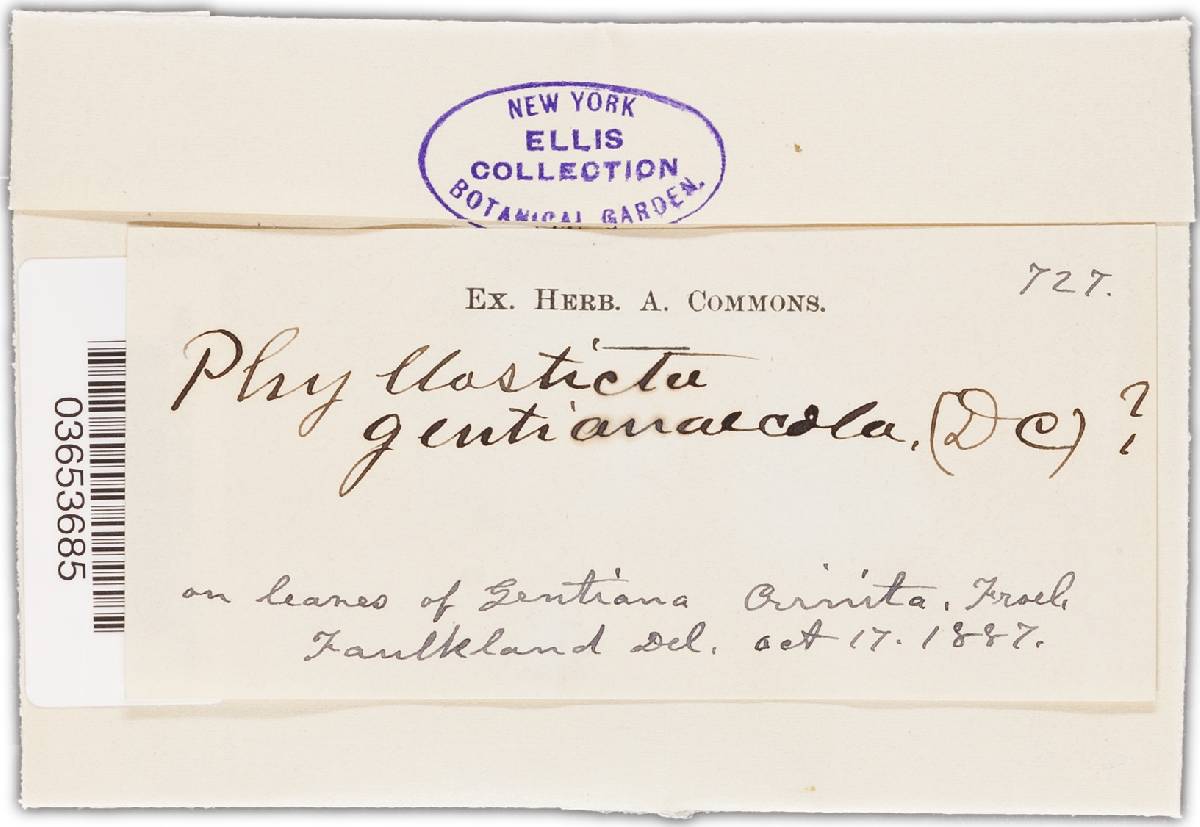 NEW YORK
ELLIS
COLLECTION
BOTANICAL GARDEN.
727.
EX. HERB. A. COMMONS.
Phyllosticta
gentianaecola, (DC) ?
on leaves of Gentiana Crinita, Froel.
Faulkland Del. oct 17. 1887.
03653685